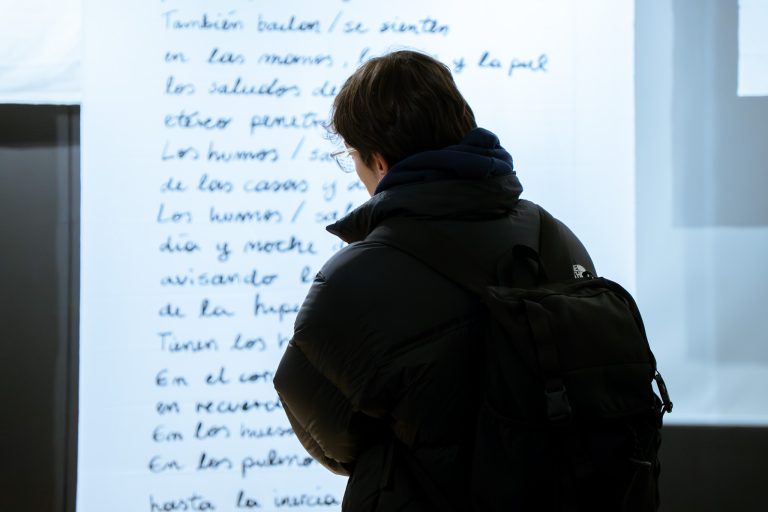 También bailan / se sienten
en las manos, y la piel
los saludos de
etéreo penetr
Los humos / sa
de las casas y d
Los humos / sal
día y noche
avisando l
de la hipe
Tienen los h
En el cor
en recuerd
En los hueso
En los pulmo
hasta la inercia